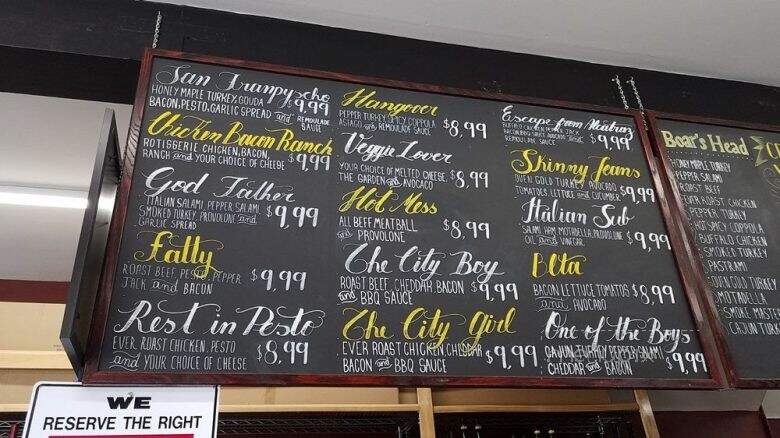 San Franpyscho
HONEY MAPLE TURKEY, GOUDA
BACON, PESTO, GARLIC SPREAD and REMOULADE
SAUCE
$9,99
Chicken Bacon Ranch
ROTISSERIE CHICKEN, BACON,
RANCH and YOUR CHOICE OF CHEESE
$9,99
God Father
ITALIAN SALAMI, PEPPER SALAMI,
SMOKED TURKEY, PROVOLONE and
GARLIC SPREAD
$9,99
Fatty
ROAST BEEF, PESTO, PEPPER
JACK and BACON
$9,99
Rest in Pesto
EVER ROAST CHICKEN, PESTO
and YOUR CHOICE OF CHEESE
$8,99
Hangover
PEPPER TURKEY, SPICY COPPOLA
ASIAGO and REMOULADE SAUCE
$8,99
Veggie Lover
YOUR CHOICE OF MELTED CHEESE,
THE GARDEN and AVOCADO
$8,99
Hot Mess
ALL BEEF MEATBALL
and PROVOLONE
$8,99
The City Boy
ROAST BEEF, CHEDDAR, BACON
and BBQ SAUCE
$9,99
The City Girl
EVER ROAST CHICKEN, CHEDDAR
BACON and BBQ SAUCE
$9,99
Escape from Alcatraz
CHICKEN, PEPPER JACK,
BACON, BBQ SAUCE, AVOCADO and
REMOULADE SAUCE
$9,99
Skinny Jeans
OVEN GOLD TURKEY, AVOCADO
TOMATOES, LETTUCE and CUCUMBER
$9,99
Italian Sub
SALAMI, HAM, MORTADELLA, PROVOLONE
OIL and VINEGAR
$9,99
Blta
BACON LETTUCE, TOMATOS
and AVOCADO
$8,99
One of the Boys
CAJUN TURKEY, PEPPER SALAMI
CHEDDAR and BACON
$9,99
Boar's Head
HONEY MAPLE TURKEY
PEPPER SALAMI
ROAST BEEF
EVER ROAST CHICKEN
PEPPER TURKEY
HOT SPICY COPPOLA
BUFFALO CHICKEN
SMOKED TURKEY
PASTRAMI
MORTADELLA
SMOKE MASTER
CAJUN TURKEY
WE
RESERVE THE RIGHT